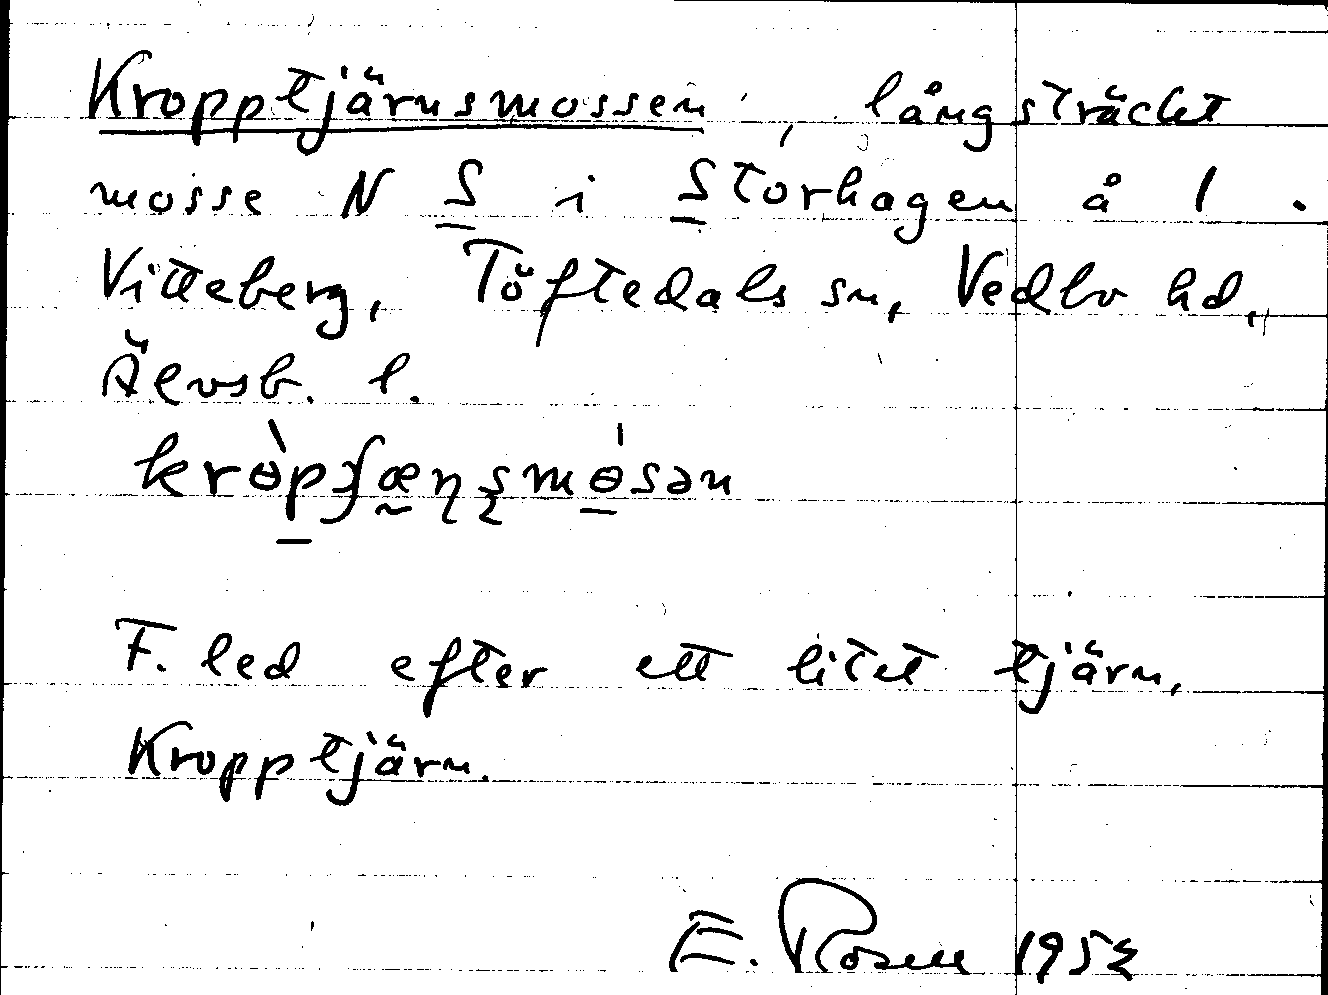 Kropptjärnsmossen, långsträckt
mosse N S i Storhagen å 1.
Vitteberg, Töftedals sn, Vedbo hd,
Älvsb. l.
F. led efter ett litet tjärn,
Kropptjärn.
E. Rosen